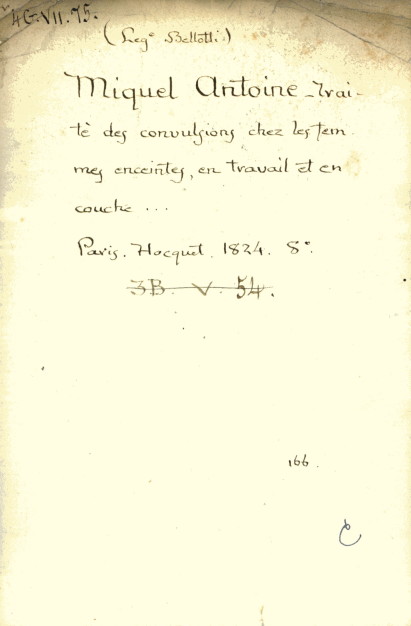 4G.VII.75.
(Leg° Bellotti)
Miquel Antoine - Trai-
té des convulsions chez les fem
mes enceintes, en travail et en
couche ...
Paris. Hocquet. 1824. 8°.
3B. V. 54.
166.
C